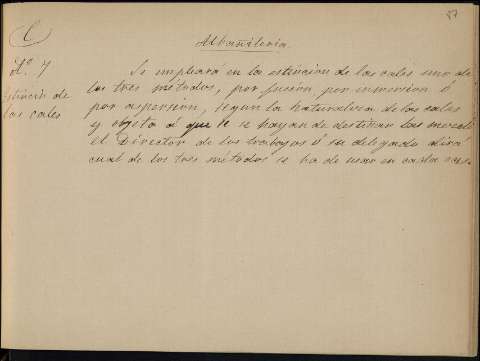 C
87
Albañileria.
Nº 7
Se empleará en la estincion de las cales uno de
los tres métodos, por fusion, por inmersion ó
Estincion de
por aspersion, segun la naturaleza de las cales
las cales
y objeto á que se hayan de destinar las mezclas
el Director de los trabajos ó su delegado dirá
cual de los tres métodos se ha de usar en cada caso